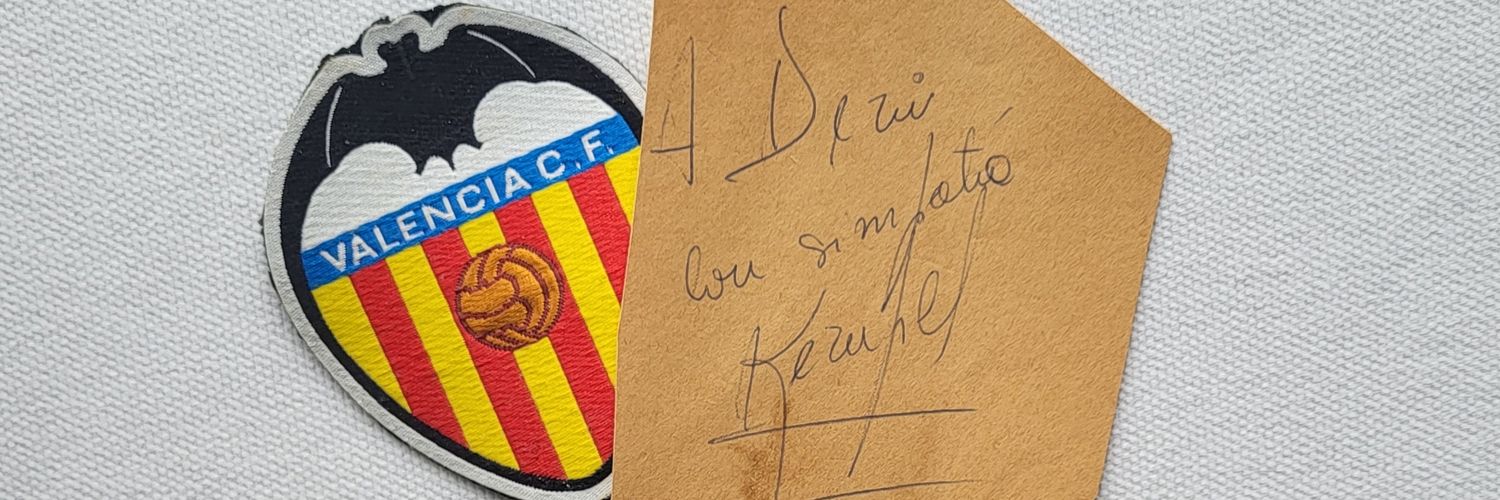 VALENCIA C.F.
A Deni
Con simpatía
Kempes